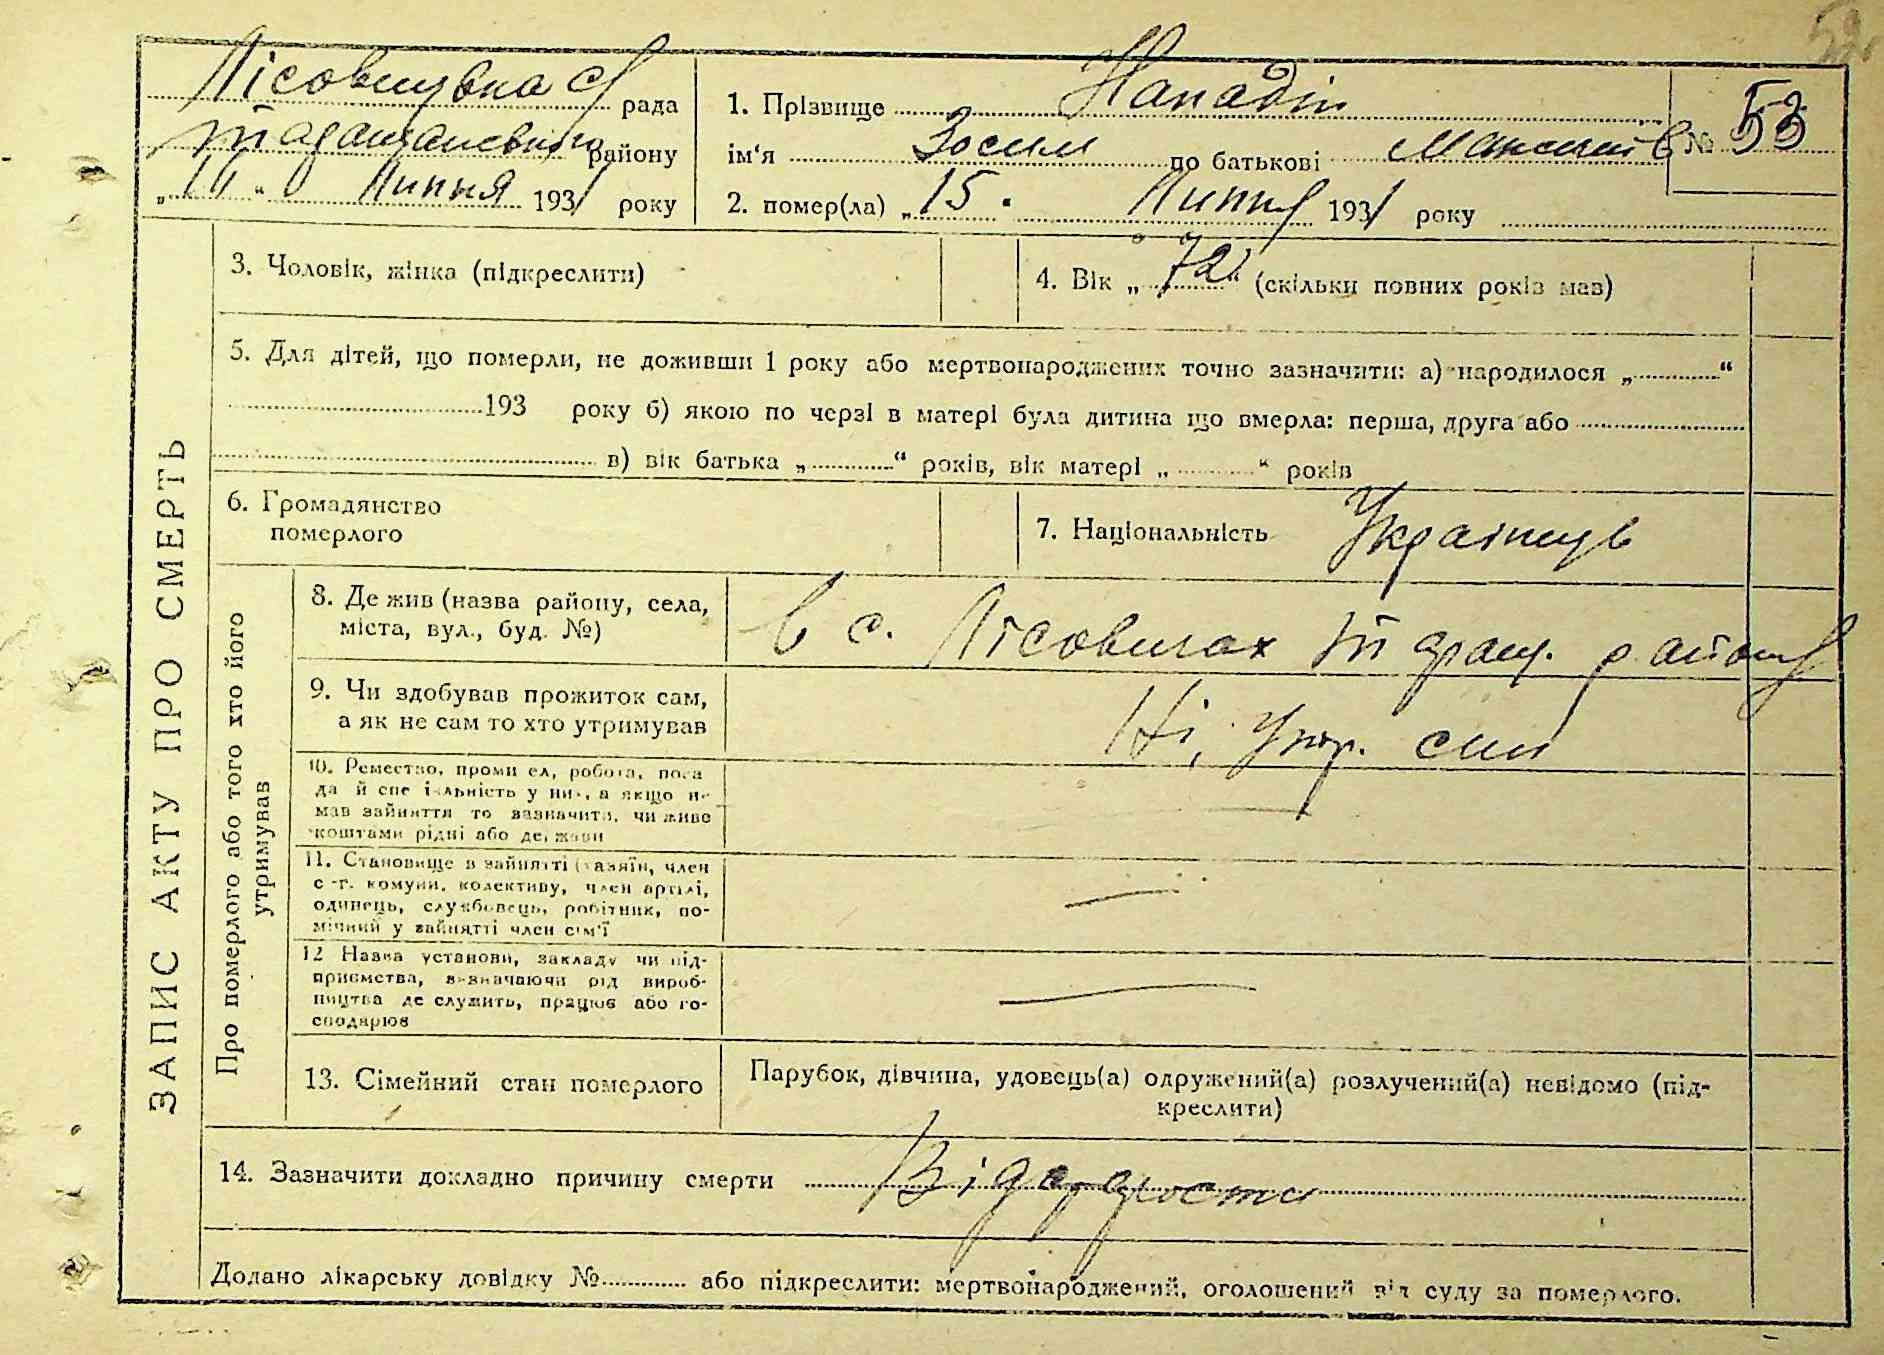 52
Лісовицька с/ рада
Таращанського району
„ “ Липня 1931 року
1. Прізвище
ім‘я Зосим по батькові Максимів № 53
2. помер(ла) „15. Липня 1931 року
ЗАПИС АКТУ ПРО СМЕРТЬ
3. Чоловік, жінка (підкреслити)
4. Вік „72“ (скільки повних років мав)
5. Для дітей, що померли, не доживши 1 року або мертвонароджених точно зазначити: а) народилося „ “
193 року б) якою по черзі в матері була дитина що вмерла: перша, друга або
в) вік батька „ “ років, вік матері „ “ років
6. Громадянство
померлого
7. Національність Українець
Про померлого або того хто його
утримував
8. Де жив (назва району, села,
міста, вул., буд. №)
в с. Лісовичах Таращ. району
9. Чи здобував прожиток сам,
а як не сам то хто утримував
Ні, утр. син
10. Ремество, промисел, робота, поса
да й спеціальність у них, а якщо не
мав зайняття то зазначити, чи живе
коштами рідні або держави
11. Становище в зайнятті (хазяїн, член
с-г. комуни, колективу, член артілі,
одинець, службовець, робітник, по-
мічний у зайнятті член сім‘ї
12 Назва установи, закладу чи під-
приємства, визначаючи рід вироб-
ництва де служить, працює або го-
сподарює
13. Сімейний стан померлого
Парубок, дівчина, удовець(а) одружений(а) розлучений(а) невідомо (під-
креслити)
14. Зазначити докладно причину смерти Від
Додано лікарську довідку № або підкреслити: мертвонароджений, оголошений від суду за померлого.